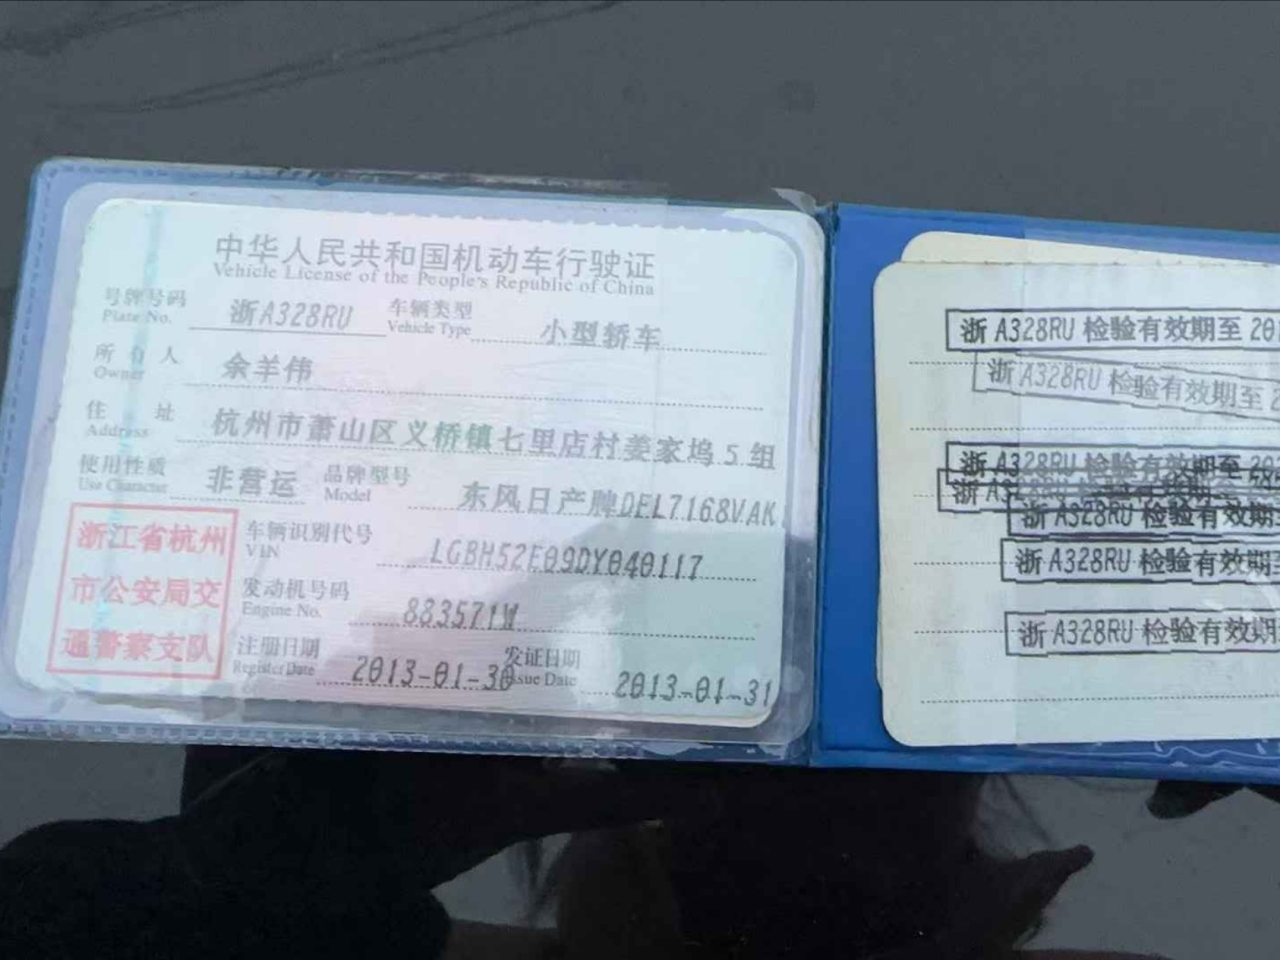 中华人民共和国机动车行驶证
Vehicle License of the People's Republic of China
号牌号码 浙A328RU 车辆类型 小型轿车
Plate No. Vehicle Type
所有人 余羊伟
Owner
住址 杭州市萧山区义桥镇七里店村姜家坞5组
Address
使用性质 非营运 品牌型号 东风日产牌DFL7168VAK
Use Character Model
浙江省杭州
市公安局交
通警察支队
车辆识别代号 LGBH52E09DY040117
VIN
发动机号码 883571W
Engine No.
注册日期 2013-01-30 发证日期 2013-01-31
Register Date Issue Date
浙A328RU检验有效期至20
浙A328RU检验有效期至2
浙A328RU检验有效期至20
浙A32
浙A328RU检验有效期
浙A328RU检验有效期至
浙A328RU检验有效期